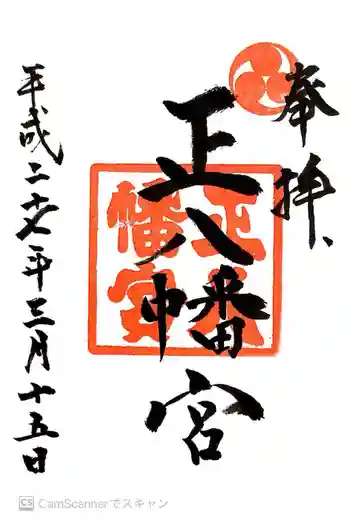 奉拝
正八幡宮
正八
幡宮
平成二十七年三月十五日
CS CamScannerでスキャン